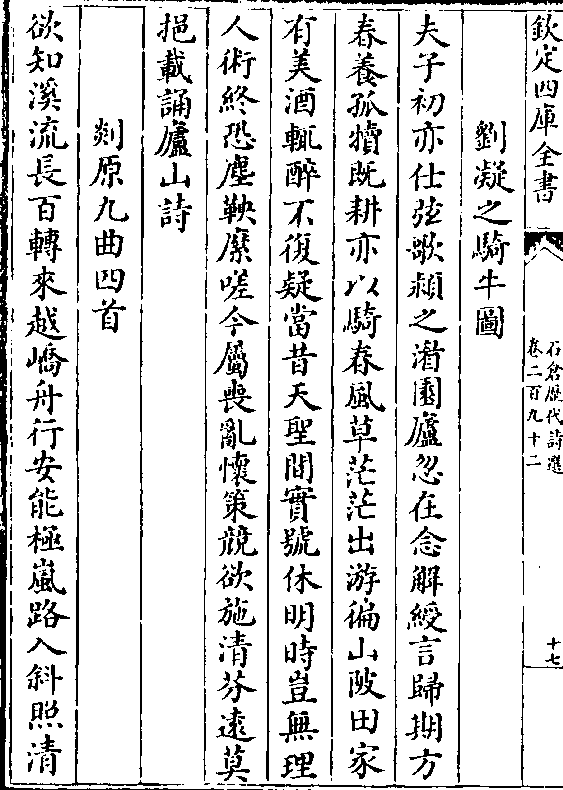 欽定四庫全書
石倉歷代詩選
卷二百九十二
十七
劉凝之騎牛圖
夫子初亦仕弦歌潁之湄園廬忽在念解綬言歸期方
春養孤犢既耕亦以騎春風草茫茫出游徧山陂田家
有美酒輒醉不復疑當昔天聖間實號休明時豈無理
人術終恐塵鞅縻嗟今屬喪亂懷策競欲施清芬遠莫
挹載誦廬山詩
剡原九曲四首
欲知溪流長百轉來越嶠舟行安能極嵐路入斜照清